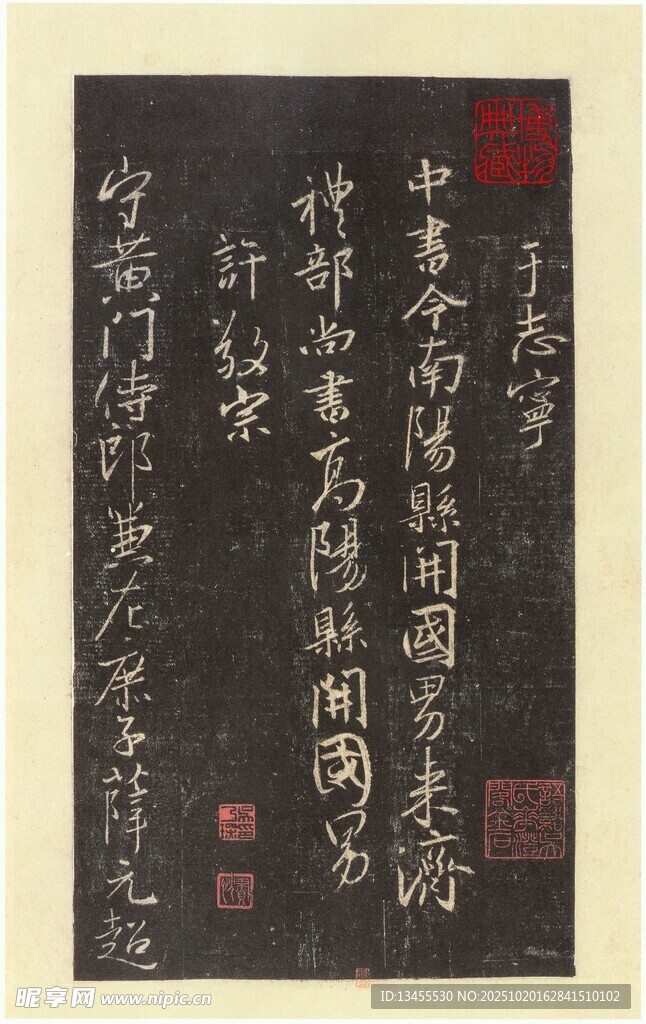 于志寧
中書令南陽縣開國男来濟
禮部尚書高陽縣開國男
許敬宗
守黄門侍郎兼左庶子薛元超
昵享网 www.nipic.cn
ID:13455530 NO:20251020162841510102